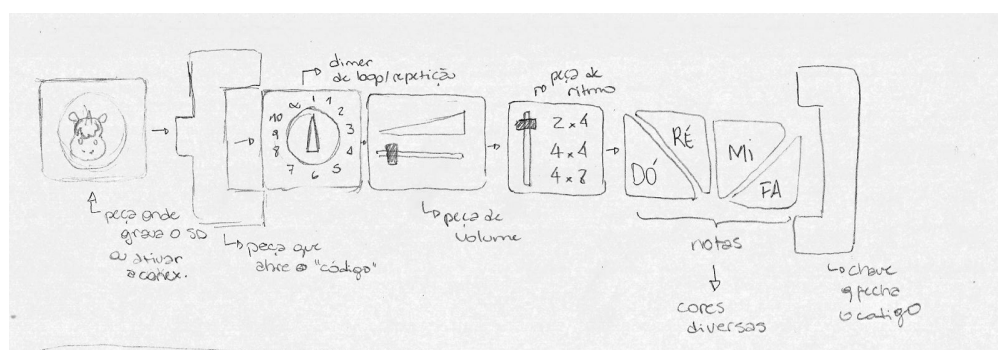 dimer
de loop/repetição
peça de
ritmo
∞ | 1
2
3
4
5
6
7
8
9
10
2x4
4x4
4x8
DÓ
RÉ
Mi
FA
peça onde
grava o SD
ou ativar
a conex.
peça que
abre o "código"
peça de
volume
notas
cores
diversas
chave
q fecha
o codigo